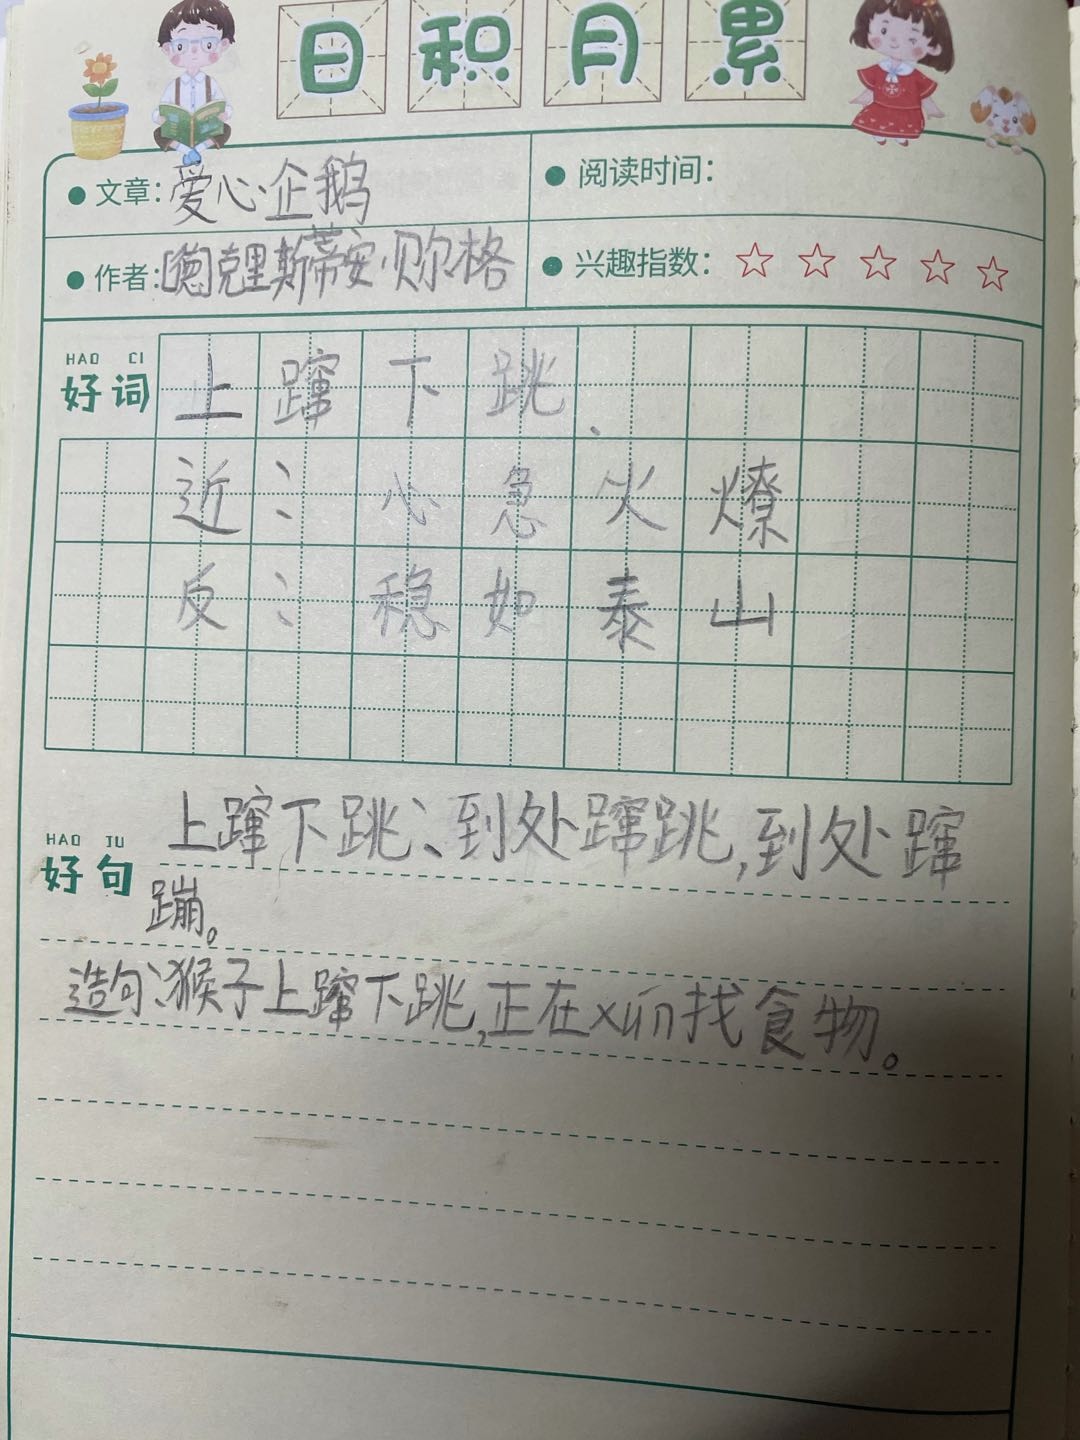 日积月累
文章：爱心·企鹅
阅读时间：
作者：[德]克里斯蒂安·贝尔格
兴趣指数：☆☆☆☆☆
HAO CI
好词
上蹿下跳
近：心急火燎
反：稳如泰山
HAO JU
好句
上蹿下跳：到处蹿跳，到处蹿
蹦。
造句：猴子上蹿下跳，正在xún找食物。